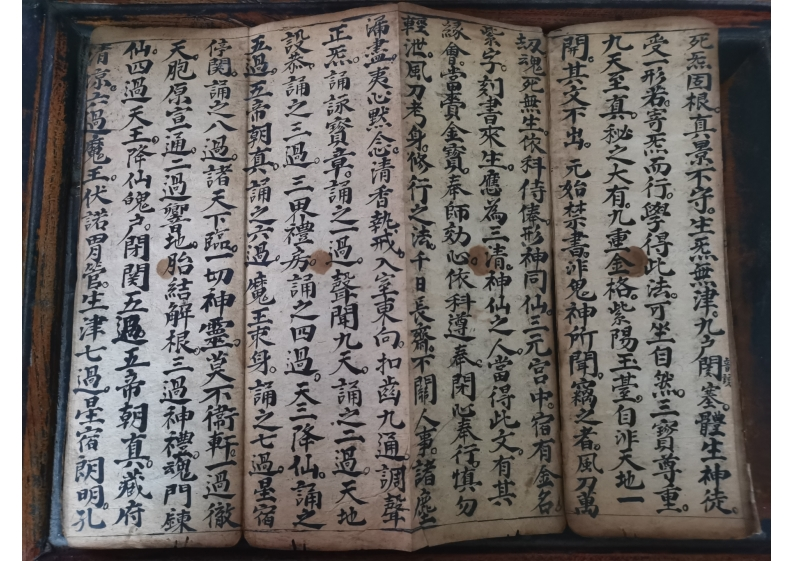 死炁固根。真景不守。生炁無津。九户閉塞。體生神徒。
受一形。若寄炁而行。學得此法。可坐自然。三寶尊重。
九天至真。秘之大有。九重金格。紫陽玉臺。自非天地一
開。其文不出。元始禁書。非鬼神所聞。竊之者。風刀萬
劫。魂死無生。依科侍俵。形神同仙。三元宫中。宿有金名。
紫字。刻書來生。應為三清。神仙之人。當得此文。有其
緣會。當賫金寶。奉師効心。依科遵奉。閉心奉行。慎勿
輕泄。風刀考身。修行之法。千日長齋。不關人事。諸塵
漏盡。夷心默念。清香執戒。入室東向。扣齒九通。調聲
正炁。誦詠寶章。誦之一過。聲聞九天。誦之二過。天地
設恭。誦之三過。三界禮房。誦之四過。天三降仙。誦之
五過。五帝朝真。誦之六過。魔王束身。誦之七過。星宿
停関。誦之八過。諸天下臨。一切神靈。莫不衛軒。一過徹
天。胞原宣通。二過響地。胎結解根。三過神禮。魂門鍊
仙。四過天王降仙。魄户閉関。五過五帝朝真。藏府
清凉。六過魔王伏諾。胃管。生津七過。星宿朗明。孔